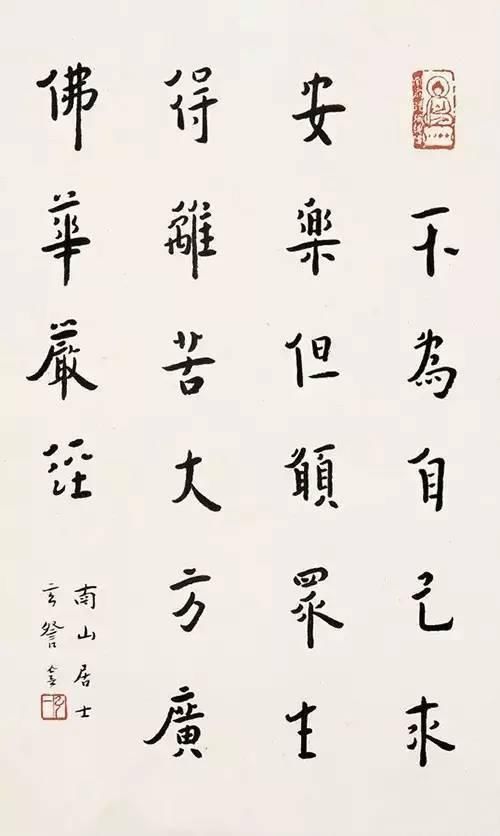 不為自己求
安樂但願眾生
得離苦大方廣
佛華嚴經
南山居士
玄